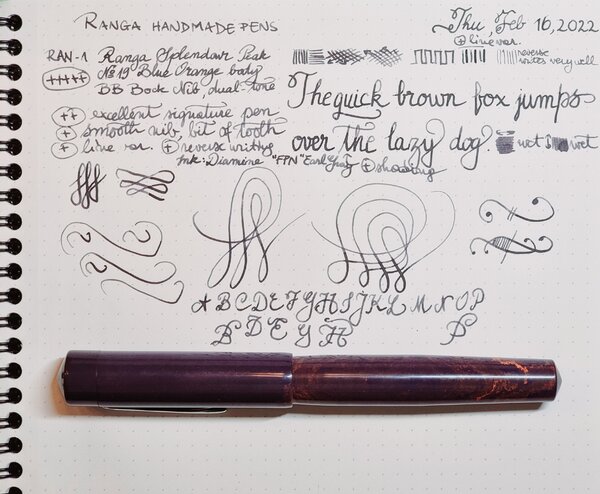 RANGA HANDMADE PENS
Thu, Feb 16, 2022
⊕ line var.
RAN-1 Ranga Splendour Peak
№ 19 Blue Orange body
BB Bock Nib, dual-tone
+++++
reverse
writes very well
The quick brown fox jumps
over the lazy dog.
wet wet
++ excellent signature pen
+ smooth nib, bit of tooth
+ line var. + reverse writing
Ink: Diamine "FPN" Earl Grey + shading
A B C D E F G H I J K L M N O P
B D E G H P